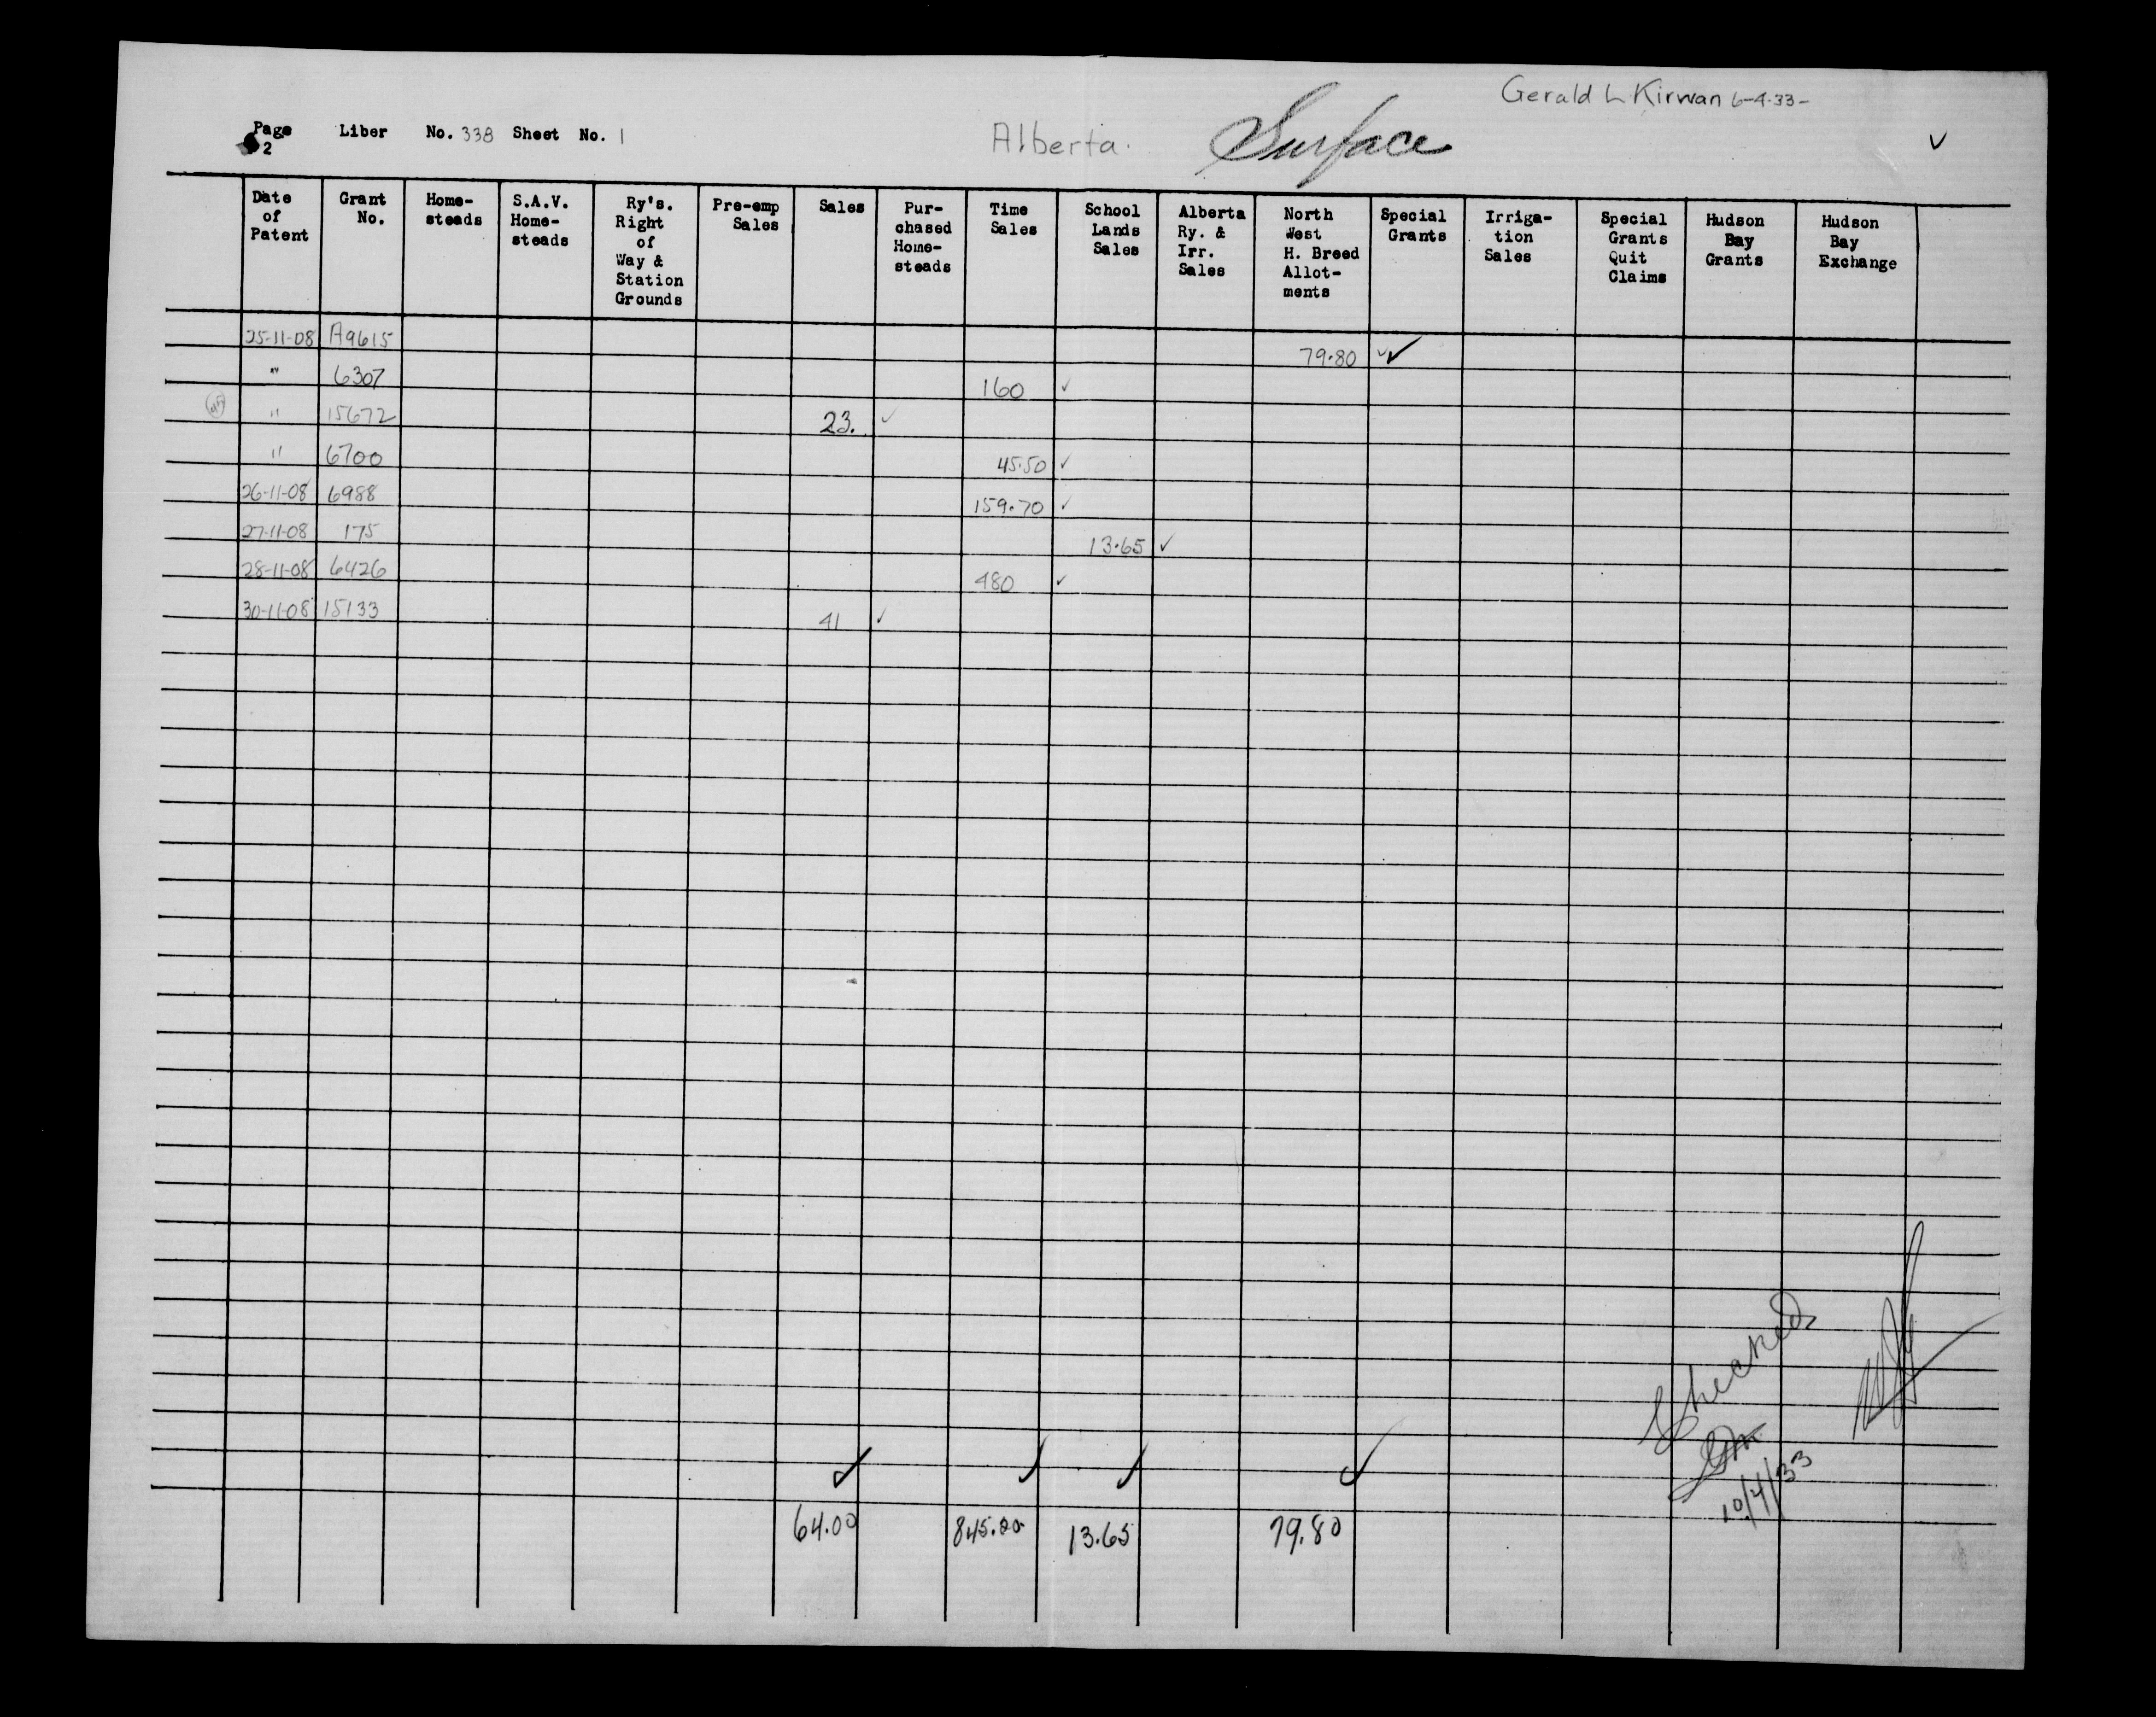 Gerald L Kirwan 6-4-33-
Page 2 Liber No. 338 Sheet No. 1 Alberta. Surface ✓
Date of Patent | Grant No. | Home-steads | S.A.V. Home-steads | Ry's. Right of Way & Station Grounds | Pre-emp Sales | Sales | Pur-chased Home-steads | Time Sales | School Lands Sales | Alberta Ry. & Irr. Sales | North West H. Breed Allot-ments | Special Grants | Irriga-tion Sales | Special Grants Quit Claims | Hudson Bay Grants | Hudson Bay Exchange
25-11-08 A9615 79.80 ✓✓
" 6307 160 ✓
" 15672 23. ✓
" 6700 45.50 ✓
26-11-08 6988 159.70 ✓
27-11-08 175 13.65 ✓
28-11-08 6426 480 ✓
30-11-08 15133 41 ✓
Checked
10/4/33
✓ ✓ ✓ ✓
64.00 845.20 13.65 79.80